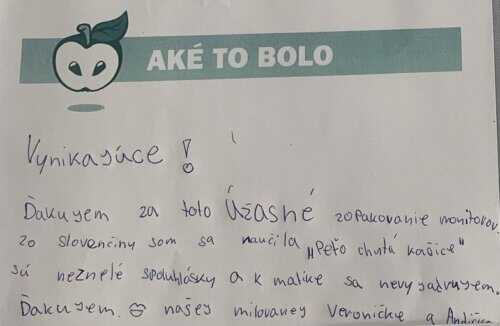 AKÉ TO BOLO
Vynikajúce!
Ďakujem za toto Úžasné zopakovanie monitorov.
zo slovenčiny som sa naučila „Peťo chutá kašice"
sú neznelé spoluhlásky a k matike sa nevyjadrujem.
Ďakujem našej milovanej Veroničke a